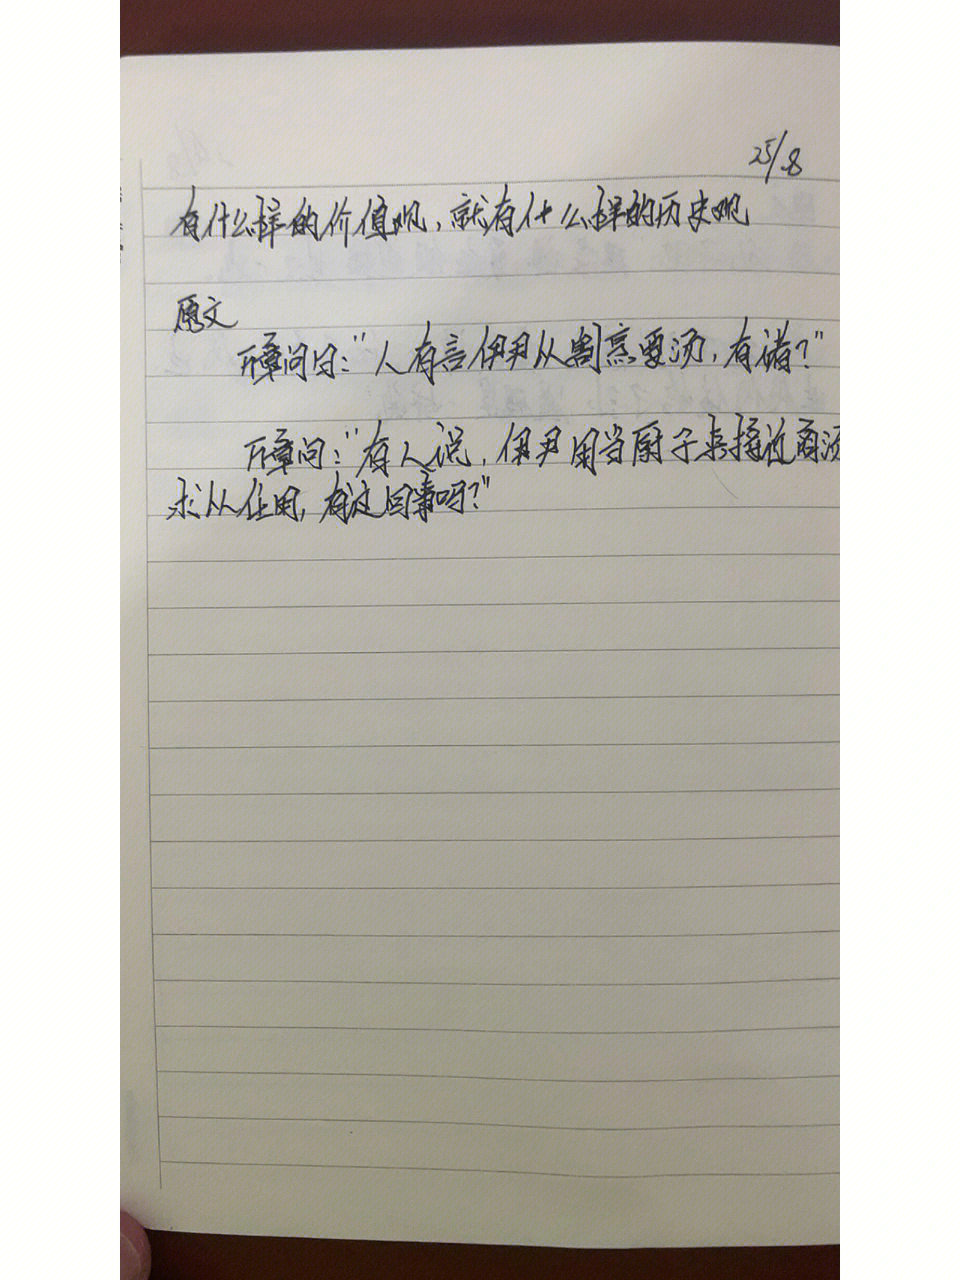 25/8
有什么样的价值观，就有什么样的历史观
原文
万章问曰："人有言伊尹以割烹要汤，有诸？"
万章问："有人说，伊尹用当厨子来接近商汤
求以任用，有这回事吗？"